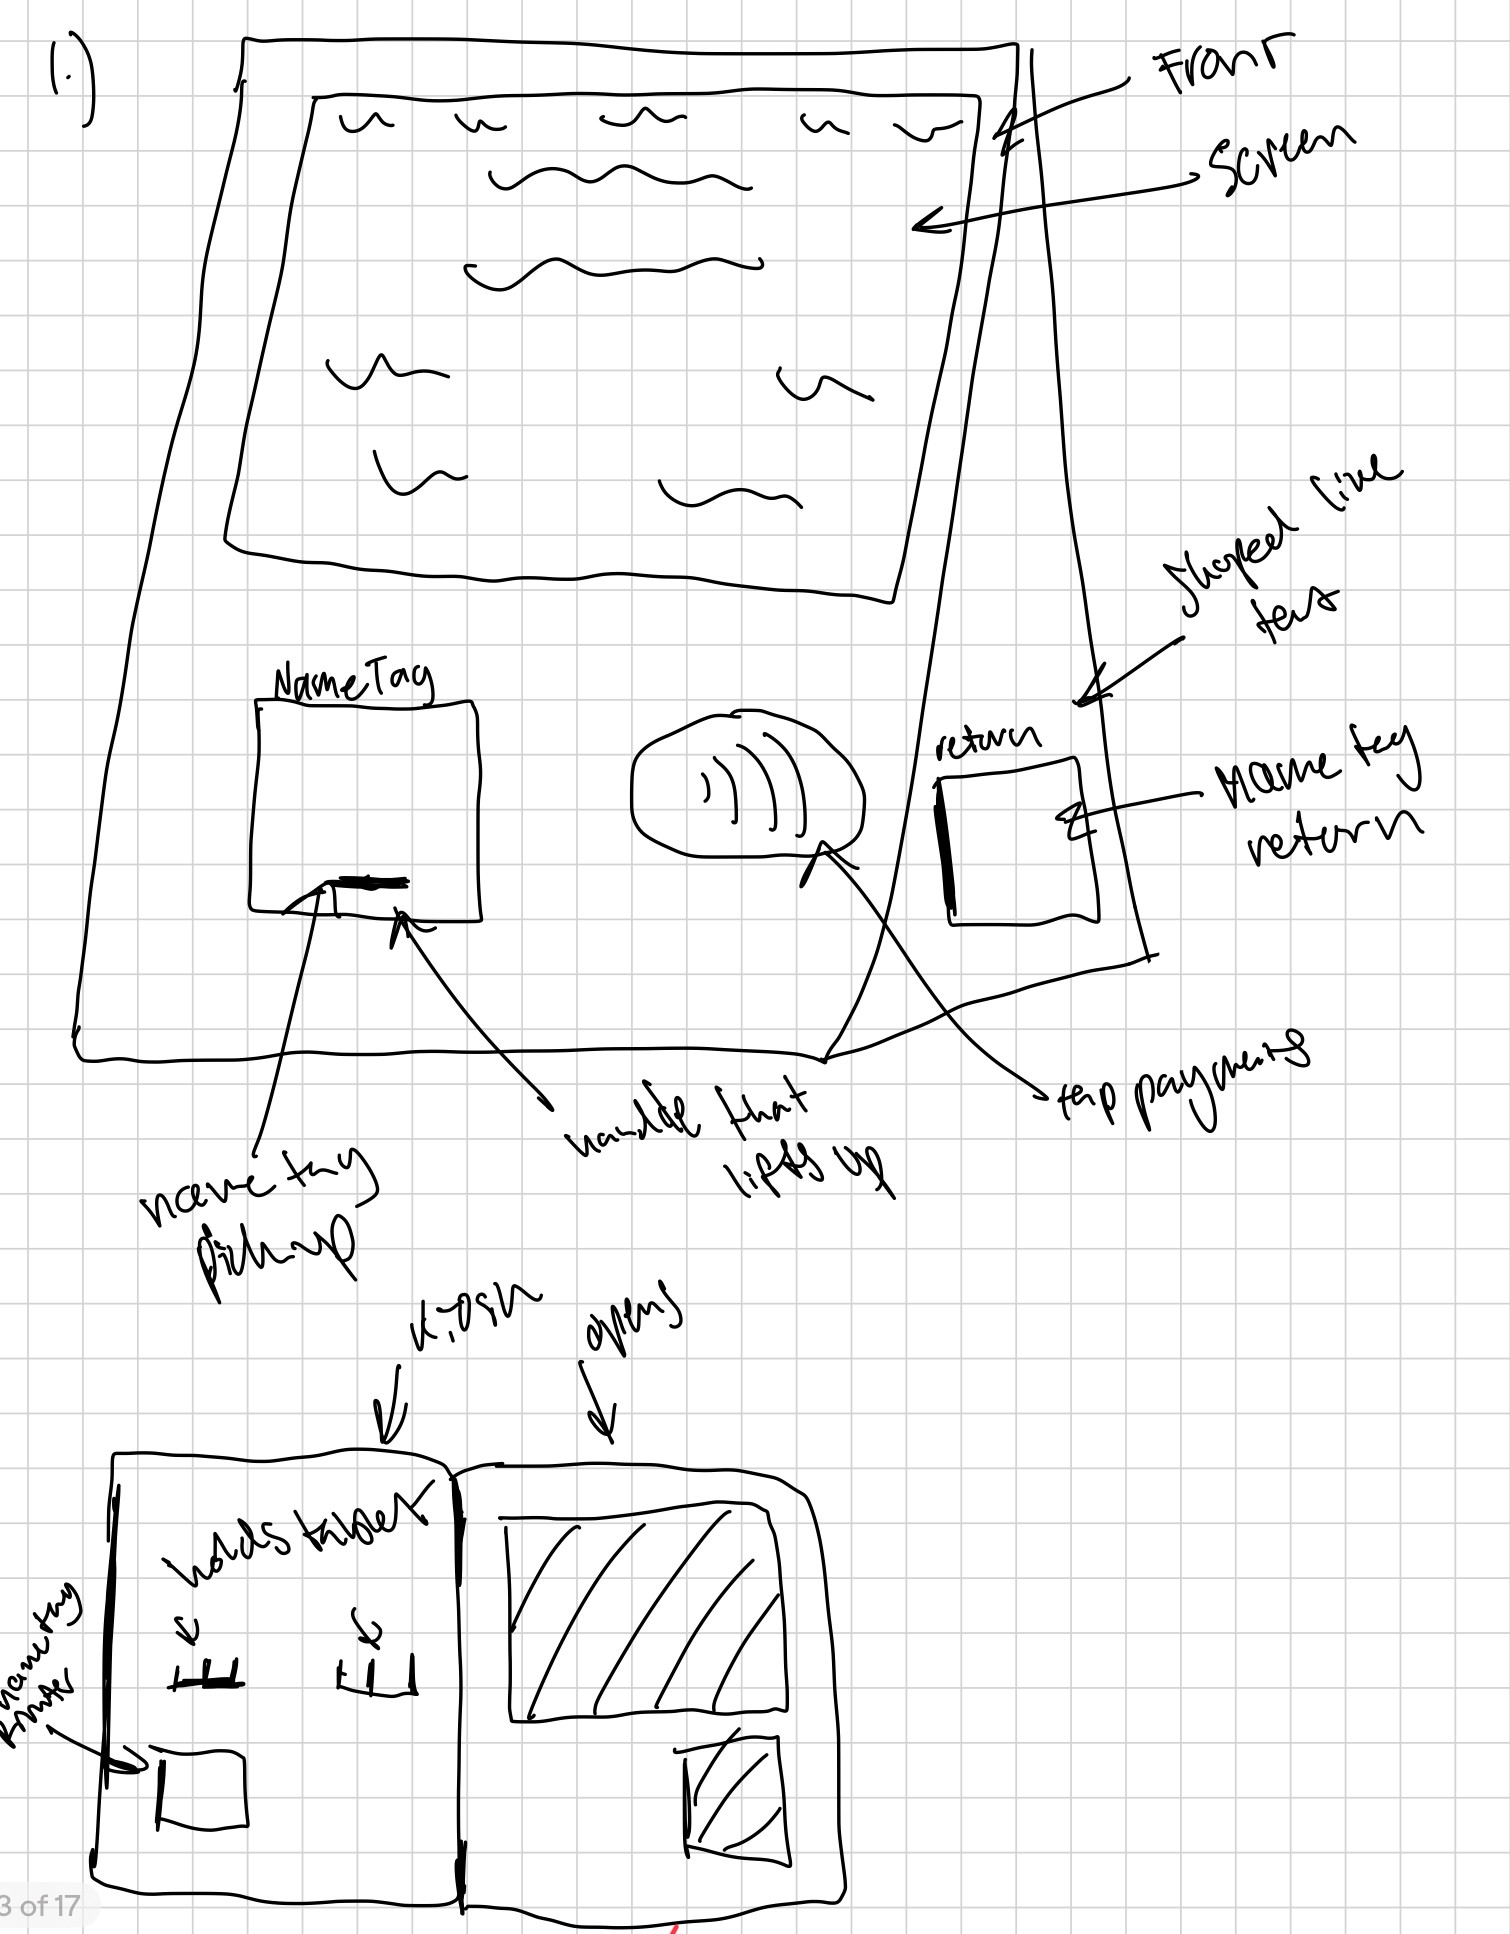 1.)
Front
Screen
shaped like
tent
NameTag
return
name tag
return
tap payments
handle that
lifts up
name tag
pickup
kiosk
opens
holds tablet
name tag
printer
3 of 17